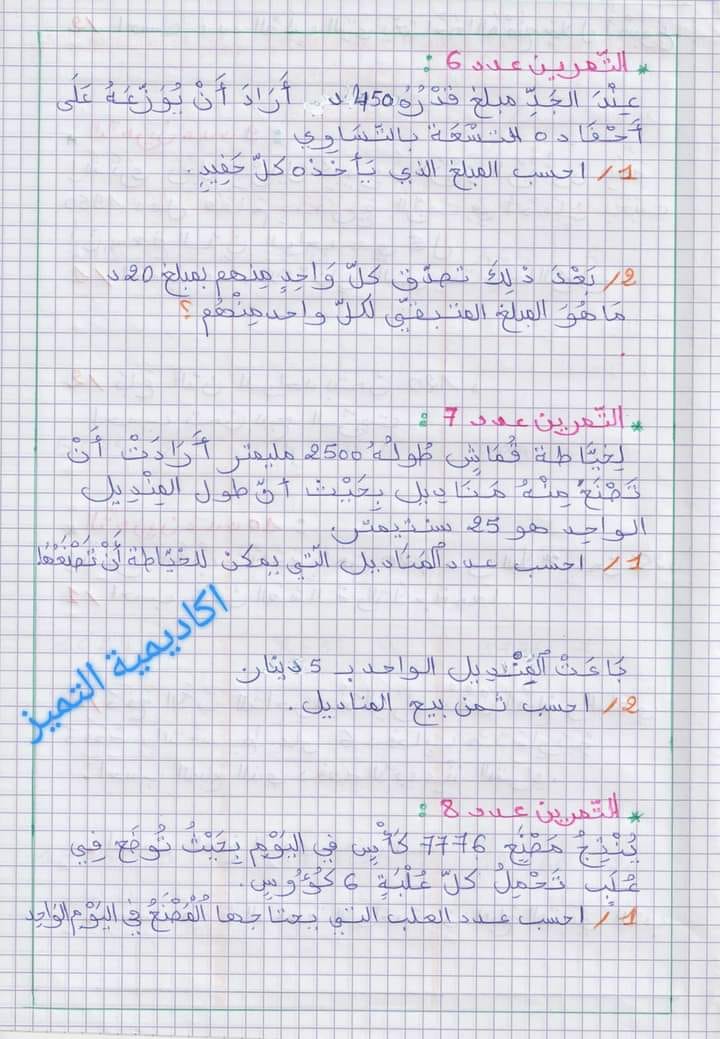 * التّمرين عدد 6 :
عِنْدَ الجَدِّ مبلغ قَدْرُهُ 450د. أَرَادَ أَنْ يُوَزِّعَهُ عَلَى
أَحْفَاده التسْعَة بالتَّسَاوِي
1/ احسب المبلغ الذي يَأخذه كلّ حَفِيدٍ.
2/ بَعْدَ ذلِكَ تصدّق كلّ وَاحِدٍ مِنهم بمبلغ 20د
مَا هُوَ المبلغ المتبقّي لكلّ واحد مِنْهُم ؟
* التّمرين عدد 7 :
لِخيَّاطة قُمَاش طُولُهُ 2500 مليمتر أَرَادَتْ أَنْ
تَصْنَعَ مِنْهُ مَنَاديل بِحَيْث أنّ طول المِنْدِيل
الواحِد هو 25 سنتيمتر
1/ احسب عدد المَنَاديل الّتي يمكن للخيّاطة أَنْ تَصْنَعَهَا
اكاديمية التميز
بَاعَتْ المِنْدِيل الواحد بـ 5 دينار
2/ احسب ثمن بيع المناديل.
* التّمرين عدد 8 :
يُنْتِجُ مَصْنَع 7776 كَأْس فِي اليَوْمِ بِحَيْثُ تُوضَع فِي
عُلَب تَحْمِلُ كلّ عُلْبَةٍ 6 كُؤُوسٍ.
1/ احسب عدد العلب التي يحتاجها المَصْنَعُ فِي اليَوْم الوَاحِد